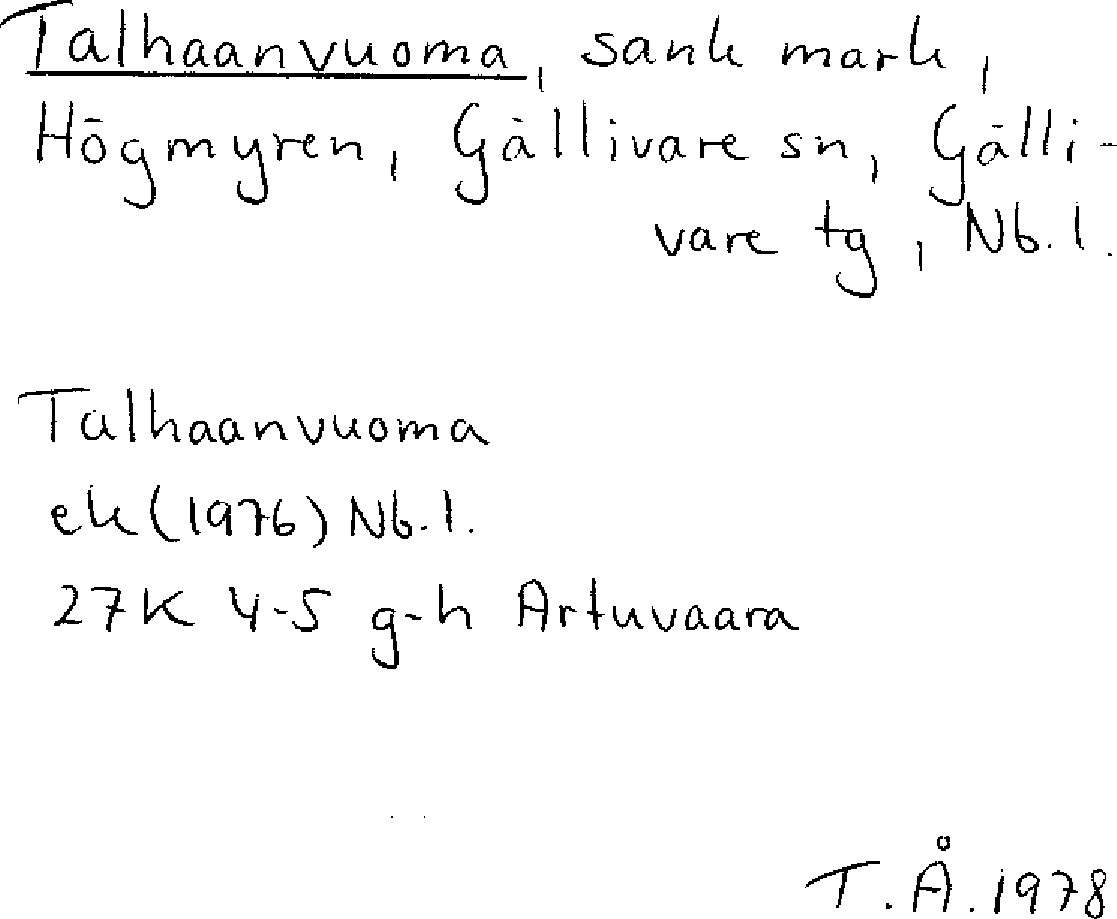 Talhaanvuoma, sank mark,
Högmyren, Gällivare sn, Gälli-
vare tg, Nb.l.
Talhaanvuoma
ek (1976) Nb.l.
27K 4-5 g-h Artuvaara
T.Å. 1978